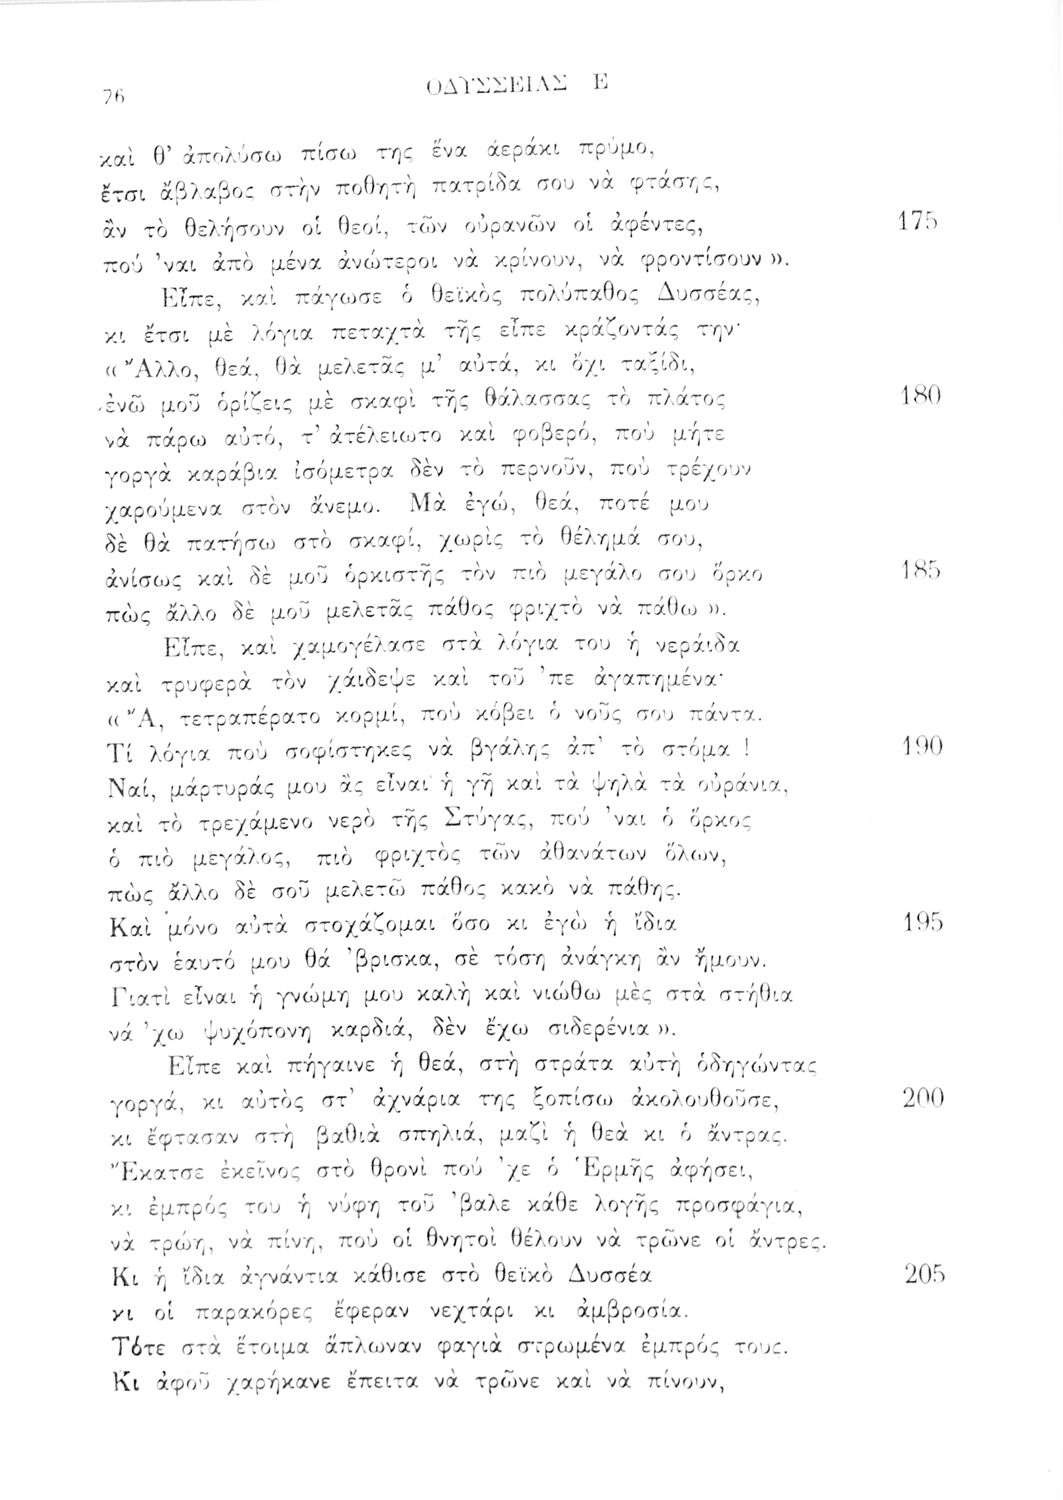 76
ΟΔΥΣΣΕΙΑΣ Ε
καὶ θ' ἀπολύσω πίσω της ἕνα ἀεράκι πρύμο,
ἔτσι ἄβλαβος στὴν ποθητὴ πατρίδα σου νὰ φτάσης,
ἂν τὸ θελήσουν οἱ θεοί, τῶν οὐρανῶν οἱ ἀφέντες, 175
πού 'ναι ἀπὸ μένα ἀνώτεροι νὰ κρίνουν, νὰ φροντίσουν ».
Εἶπε, καὶ πάγωσε ὁ θεϊκὸς πολύπαθος Δυσσέας,
κι ἔτσι μὲ λόγια πεταχτὰ τῆς εἶπε κράζοντάς την·
« Ἄλλο, θεά, θὰ μελετᾶς μ' αὐτά, κι ὄχι ταξίδι,
ἐνῶ μοῦ ὁρίζεις μὲ σκαφὶ τῆς θάλασσας τὸ πλάτος 180
νὰ πάρω αὐτό, τ' ἀτέλειωτο καὶ φοβερό, ποὺ μήτε
γοργὰ καράβια ἰσόμετρα δὲν τὸ περνοῦν, ποὺ τρέχουν
χαρούμενα στὸν ἄνεμο. Μὰ ἐγώ, θεά, ποτέ μου
δὲ θὰ πατήσω στὸ σκαφί, χωρὶς τὸ θέλημά σου,
ἀνίσως καὶ δὲ μοῦ ὁρκιστῆς τὸν πιὸ μεγάλο σου ὅρκο 185
πὼς ἄλλο δὲ μοῦ μελετᾶς πάθος φριχτὸ νὰ πάθω ».
Εἶπε, καὶ χαμογέλασε στὰ λόγια του ἡ νεράιδα
καὶ τρυφερὰ τὸν χάιδεψε καὶ τοῦ 'πε ἀγαπημένα·
« Ἄ, τετραπέρατο κορμί, ποὺ κόβει ὁ νοῦς σου πάντα.
Τί λόγια ποὺ σοφίστηκες νὰ βγάλης ἀπ' τὸ στόμα ! 190
Ναί, μάρτυράς μου ἂς εἶναι ἡ γῆ καὶ τὰ ψηλὰ τὰ οὐράνια,
καὶ τὸ τρεχάμενο νερὸ τῆς Στύγας, πού 'ναι ὁ ὅρκος
ὁ πιὸ μεγάλος, πιὸ φριχτὸς τῶν ἀθανάτων ὅλων,
πὼς ἄλλο δὲ σοῦ μελετῶ πάθος κακὸ νὰ πάθης.
Καὶ μόνο αὐτὰ στοχάζομαι ὅσο κι ἐγὼ ἡ ἴδια 195
στὸν ἑαυτό μου θά 'βρισκα, σὲ τόση ἀνάγκη ἂν ἤμουν.
Γιατὶ εἶναι ἡ γνώμη μου καλὴ καὶ νιώθω μὲς στὰ στήθια
νά 'χω ψυχόπονη καρδιά, δὲν ἔχω σιδερένια ».
Εἶπε καὶ πήγαινε ἡ θεά, στὴ στράτα αὐτὴ ὁδηγώντας
γοργά, κι αὐτὸς στ' ἀχνάρια της ξοπίσω ἀκολουθοῦσε, 200
κι ἔφτασαν στὴ βαθιὰ σπηλιά, μαζὶ ἡ θεὰ κι ὁ ἄντρας.
Ἔκατσε ἐκεῖνος στὸ θρονὶ πού 'χε ὁ Ἑρμῆς ἀφήσει,
κι ἐμπρός του ἡ νύφη τοῦ 'βαλε κάθε λογῆς προσφάγια,
νὰ τρώη, νὰ πίνη, ποὺ οἱ θνητοὶ θέλουν νὰ τρῶνε οἱ ἄντρες.
Κι ἡ ἴδια ἀγνάντια κάθισε στὸ θεϊκὸ Δυσσέα 205
κι οἱ παρακόρες ἔφεραν νεχτάρι κι ἀμβροσία.
Τότε στὰ ἕτοιμα ἅπλωναν φαγιὰ στρωμένα ἐμπρός τους.
Κι ἀφοῦ χαρήκανε ἔπειτα νὰ τρῶνε καὶ νὰ πίνουν,